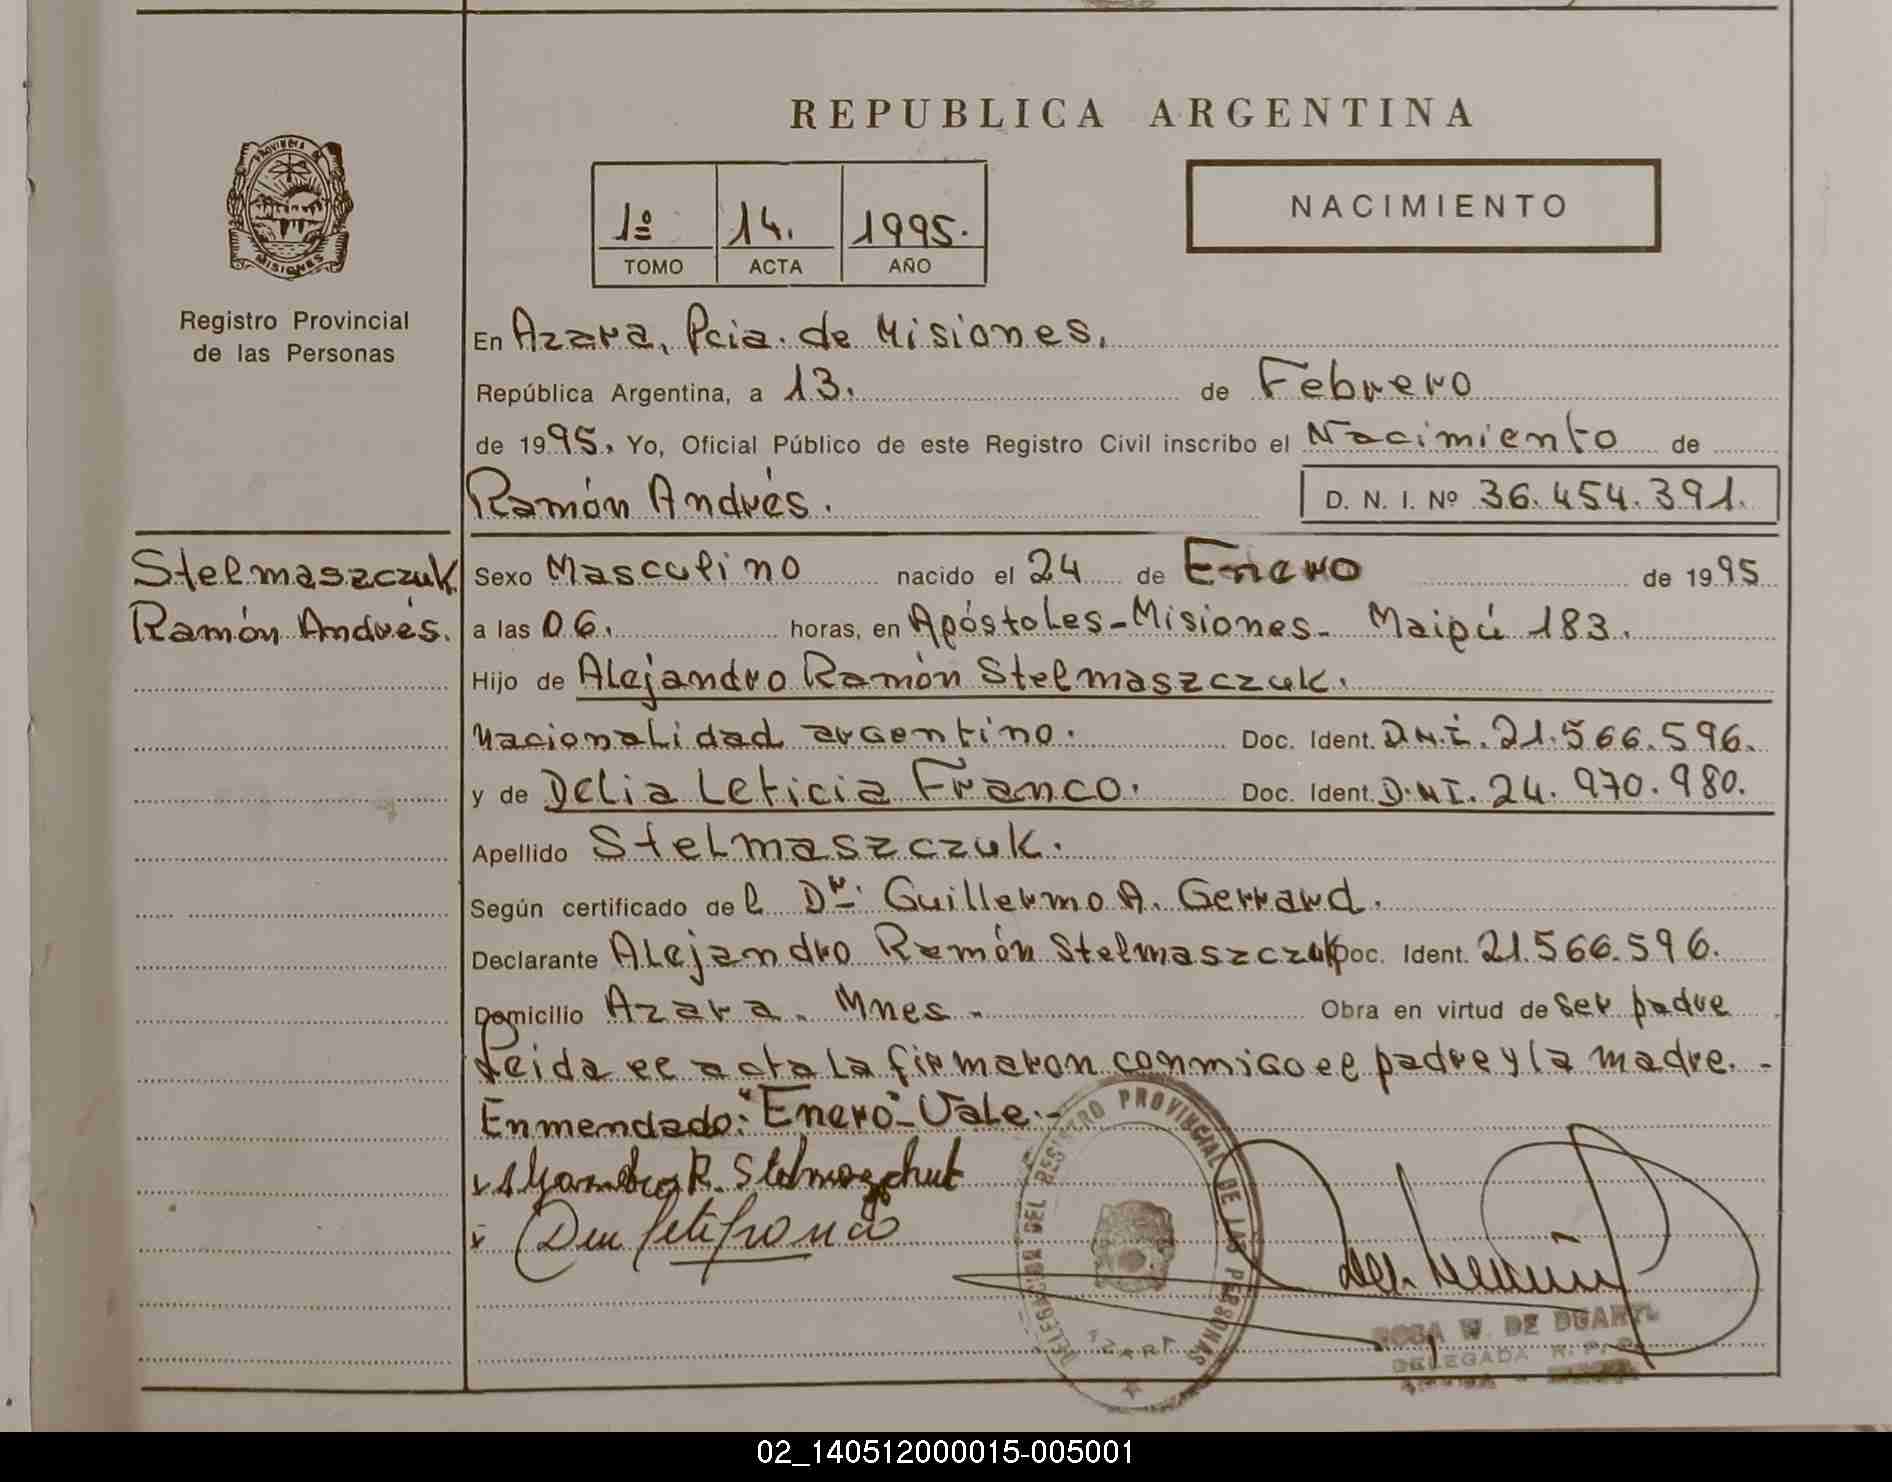 REPUBLICA ARGENTINA
PROVINCIA DE
MISIONES
Registro Provincial
de las Personas
1º 14. 1995.
TOMO ACTA AÑO
NACIMIENTO
En Azara, Pcia. de Misiones,
República Argentina, a 13. de Febrero
de 1995, Yo, Oficial Público de este Registro Civil inscribo el Nacimiento de
Ramón Andrés. D. N. I. Nº 36.454.391.
Stelmaszczuk
Ramón Andrés.
Sexo Masculino nacido el 24 de Enero de 1995
a las 06. horas, en Apóstoles-Misiones- Maipú 183.
Hijo de Alejandro Ramón Stelmaszczuk.
Nacionalidad argentino. Doc. Ident. D.N.I. 21.566.596.
y de Delia Leticia Franco. Doc. Ident. D.N.I. 24.970.980.
Apellido Stelmaszczuk.
Según certificado del Dr. Guillermo A. Gerrard.
Declarante Alejandro Ramón Stelmaszczuk Doc. Ident. 21.566.596.
Domicilio Azara - Mnes - Obra en virtud de ser padre
Leida el acta la firmaron conmigo el padre y la madre. -
Enmendado: "Enero"- Vale.-
Alejandro R. Stelmaszchuk
DELEGACION DEL REGISTRO PROVINCIAL DE LAS PERSONAS
AZARA
ROSA W. DE DUARTE
DELEGADA R. P. P.
02_140512000015-005001